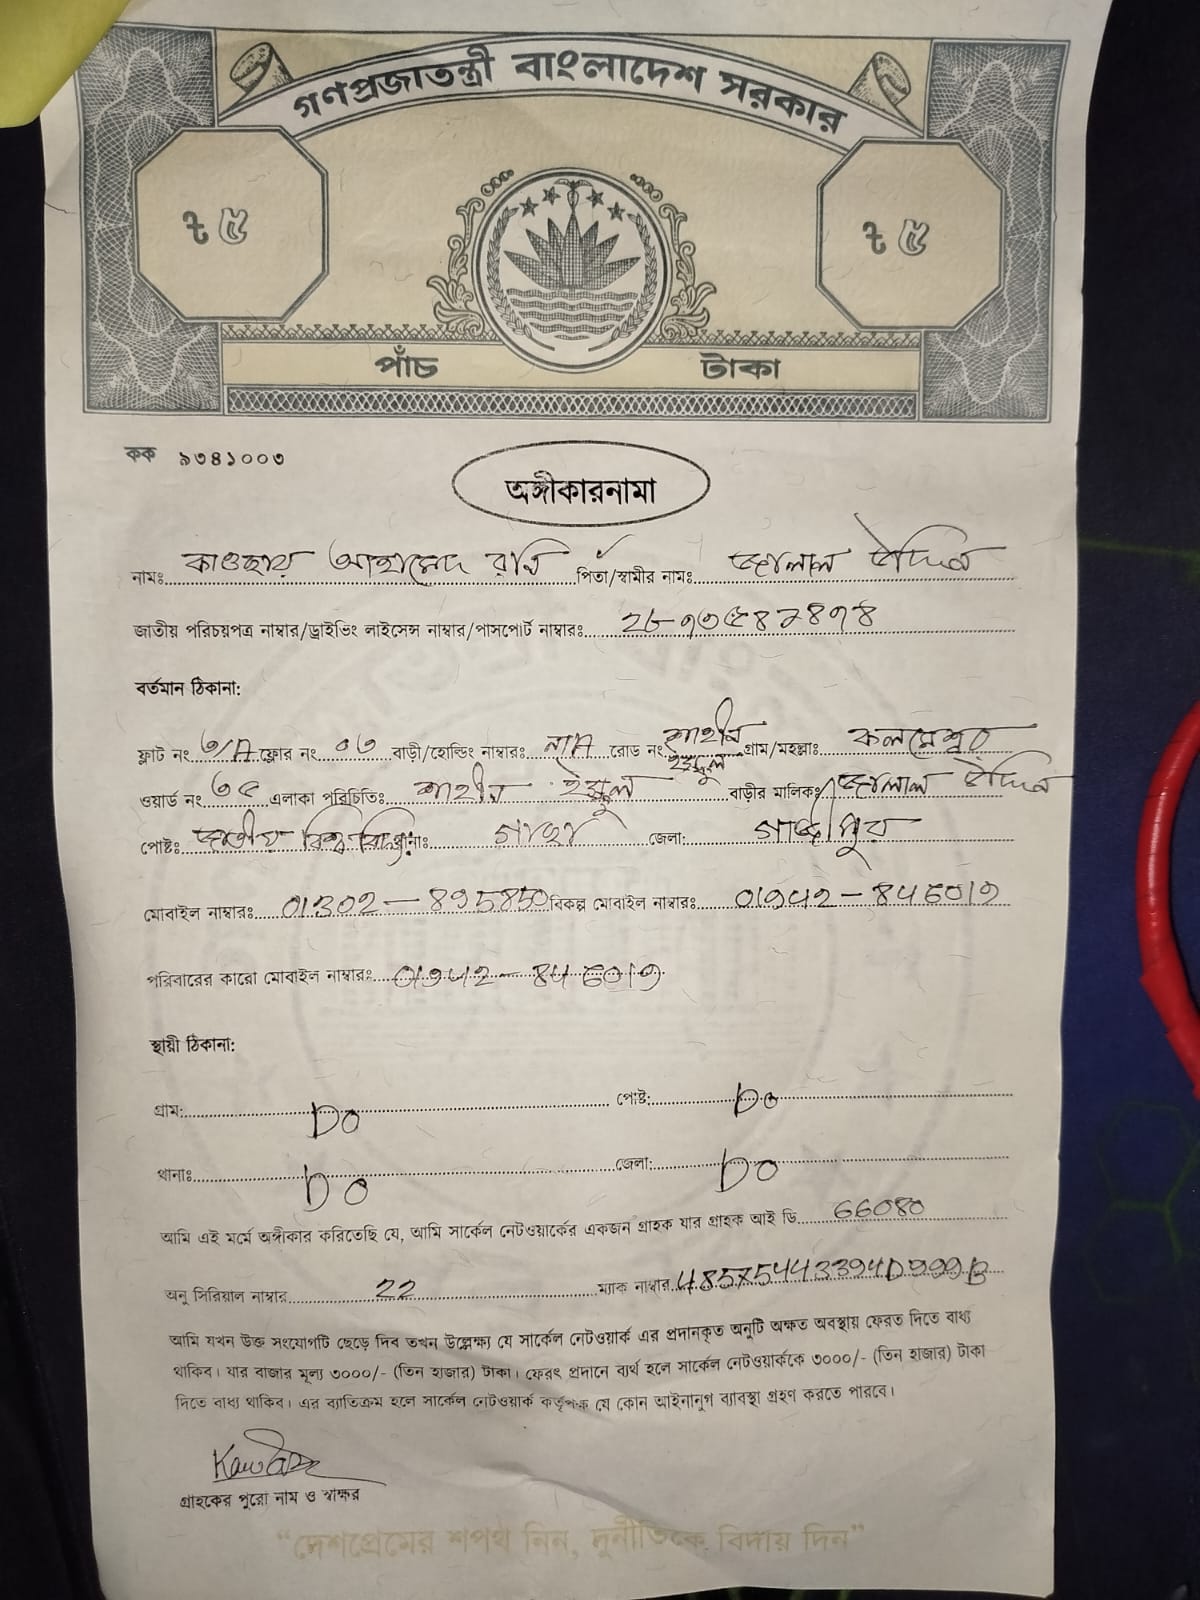 গণপ্রজাতন্ত্রী বাংলাদেশ সরকার
৳ ৫ ৳ ৫
পাঁচ টাকা
কক ৯৩৪১০০৩
অঙ্গীকারনামা
নামঃ কাওছার আহামেদ রনি পিতা/স্বামীর নামঃ জালাল উদ্দিন
জাতীয় পরিচয়পত্র নাম্বার/ড্রাইভিং লাইসেন্স নাম্বার/পাসপোর্ট নাম্বারঃ
বর্তমান ঠিকানা:
ফ্লাট নং ৩/A ফ্লোর নং ০৩ বাড়ী/হোল্ডিং নাম্বারঃ N/A রোড নং শাহীন স্কুল গ্রাম/মহল্লাঃ কলমেশ্বর
ওয়ার্ড নং ৩৫ এলাকা পরিচিতিঃ শাহীন ইস্কুল বাড়ীর মালিকঃ জালাল উদ্দিন
পোষ্টঃ জাতীয় বিশ্ব থানাঃ গাছা জেলা: গাজীপুর
মোবাইল নাম্বারঃ 01302-895850 বিকল্প মোবাইল নাম্বারঃ 01942-846019
পরিবারের কারো মোবাইল নাম্বারঃ 01942-846019
স্থায়ী ঠিকানা:
গ্রাম: Do পোষ্ট: Do
থানাঃ Do জেলা: Do
আমি এই মর্মে অঙ্গীকার করিতেছি যে, আমি সার্কেল নেটওয়ার্কের একজন গ্রাহক যার গ্রাহক আই ডি 66080
অনু সিরিয়াল নাম্বার 22 ম্যাক নাম্বার 485754433940999B
আমি যখন উক্ত সংযোগটি ছেড়ে দিব তখন উল্লেক্ষ্য যে সার্কেল নেটওয়ার্ক এর প্রদানকৃত অনুটি অক্ষত অবস্থায় ফেরত দিতে বাধ্য
থাকিব। যার বাজার মূল্য ৩০০০/- (তিন হাজার) টাকা। ফেরৎ প্রদানে ব্যর্থ হলে সার্কেল নেটওয়ার্ককে ৩০০০/- (তিন হাজার) টাকা
দিতে বাধ্য থাকিব। এর ব্যতিক্রম হলে সার্কেল নেটওয়ার্ক কর্তৃপক্ষ যে কোন আইনানুগ ব্যাবস্থা গ্রহণ করতে পারবে।
গ্রাহকের পুরো নাম ও স্বাক্ষর
“দেশপ্রেমের শপথ নিন, দুর্নীতিকে বিদায় দিন”